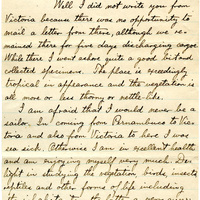 Well I did not write you from
Victoria because there was no opportunity to
mail a letter from there, although we re-
mained there for five days discharging cargo.
While there I went ashore quite a good bit and
collected specimens. The place is exceedingly
tropical in appearance and the vegetation is
all more or less thorny or nettle-like.
I am afraid that I would never be a
sailor. In coming from Pernambuco to Vic-
toria and also from Victoria to here I was
sea sick. Otherwise I am in excellent health
and am enjoying myself very much. De-
light in studying the vegetation, birds, insects
reptiles and other forms of life including